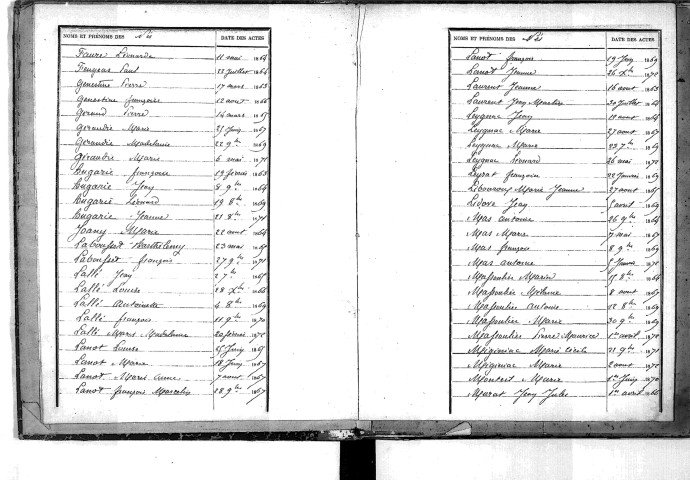 NOMS ET PRÉNOMS DES Nés DATE DES ACTES
Faure Léonarde 11 mai 1864
Feugeas Paul 22 Juillet 1864
Genestine Pierre 17 mars 1863
Genestine françoise 12 aout 1866
Geraud Pierre 16 mars 1865
Geraudie Marie 25 Juin 1867
Geraudie Madelaine 22 9bre 1869
Giraudre Marie 6 mai 1871
Lugarie françoise 19 février 1863
Lugarie Jean 8 9bre 1864
Lugarie Léonard 19 8bre 1869
Lugarie Jeanne 21 8bre 1871
Marie 22 aout 1864
Labouffet Barthélemy 23 mai 1865
Labouffet françois 27 9bre 1871
Lallé Jean 2 7bre 1865
Lallé Louise 28 Xbre 1866
Lallé Antoinette 4 8bre 1869
Lallé françois 11 9bre 1870
Lallé Marie Madelaine 20 février 1872
Lanot Louise 25 Juin 1865
Lanot Marie 18 Juin 1867
Lanot Marie Anne 7 aout 1867
Lanot françois Marcelin 28 9bre 1867
NOMS ET PRÉNOMS DES Nés DATE DES ACTES
Lanot françois 19 Juin 1869
Lanot Jeanne 26 Xbre 1870
Laurent Jeanne 16 aout 1863
Laurent Jean 30 Juillet 1864
Jean 10 aout 1864
Leygnac Marie 27 aout 1867
Leygnac Marie 23 7bre 1869
Leygnac Léonard 26 mai 1870
Leyrat françoise 22 Janvier 1869
Marie Jeanne 27 aout 1865
Lidove Jean 5 avril 1869
Mas antoine 26 9bre 1864
Mas Marie 7 mai 1867
Mas françois 8 9bre 1869
Mas antoine 5 Janvier 1871
Massoulier 15 8bre 1864
Massoulier 8 aout 1867
Massoulier Antoine 12 8bre 1869
Massoulier Marie 30 9bre 1869
Massoulier Pierre Maurice 1er avril 1870
Migniniac Marie Cécile 21 9bre 1871
Migniniac Marie 2 aout 1872
Monteil Marie 1er Juin 1870
Murat Jean Jules 1er avril 1866